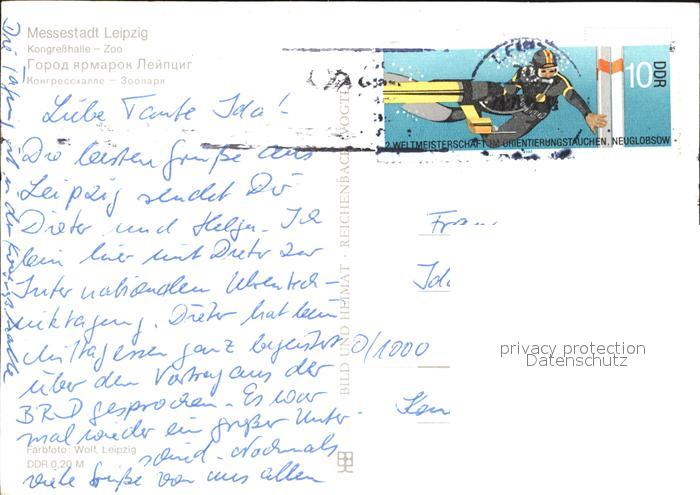 Messestadt Leipzig
Kongreßhalle – Zoo
Город ярмарок Лейпциг
Конгрессхалле – Зоопарк
Liebe Tante Ida!
Die besten Grüße aus
Leipzig sendet Dir
Dieter und Helga. Ich
bin hier mit Dieter zur
Internationalen
tagung. Dieter hat beim
Mittagessen ganz begeistert
über den Vortrag aus der
BRD gesprochen. Es war
mal wieder ein großer Unter-
schied. Nochmals
viele Grüße von uns allen
Die Tagung ist in der Kongreßhalle
Farbfoto: Wolf, Leipzig
DDR 0,20 M
BILD UND HEIMAT · REICHENBACH (VOGTL
10
DDR
2. WELTMEISTERSCHAFT IM ORIENTIERUNGSTAUCHEN, NEUGLOBSOW
Frau
Ida
0/1000
privacy protection
Datenschutz